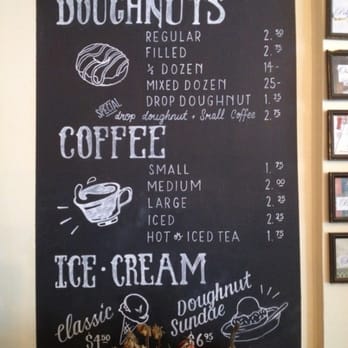 DOUGHNUTS
REGULAR 2.50
FILLED 2.75
½ DOZEN 14-
MIXED DOZEN 25-
DROP DOUGHNUT 1.25
SPECIAL drop doughnut + Small Coffee 2.75
COFFEE
SMALL 1.75
MEDIUM 2.00
LARGE 2.25
ICED 2.25
HOT OR ICED TEA 1.75
ICE·CREAM
Classic $4.50
Doughnut Sundae $6.95